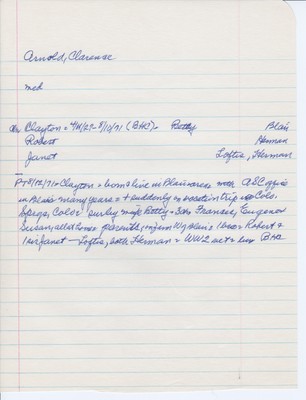 Arnold, Clarence
med
Clayton = 4/14/27-8/10/71 (BHS)= Betty Blair
Robert Herman
Janet Loftis, Herman
PT 8/12/71 = Clayton = born & live in Blair area = ASC office
in Blair many years = + suddenly on vacation trip = Colo.
Spngs, Colo = surby wife Betty = 3ch Frances, Eugene &
Susan, all home parents, Blair = 1 bro Robert &
1 sis Janet Loftis, both Herman = WW2 vet = bur BHC